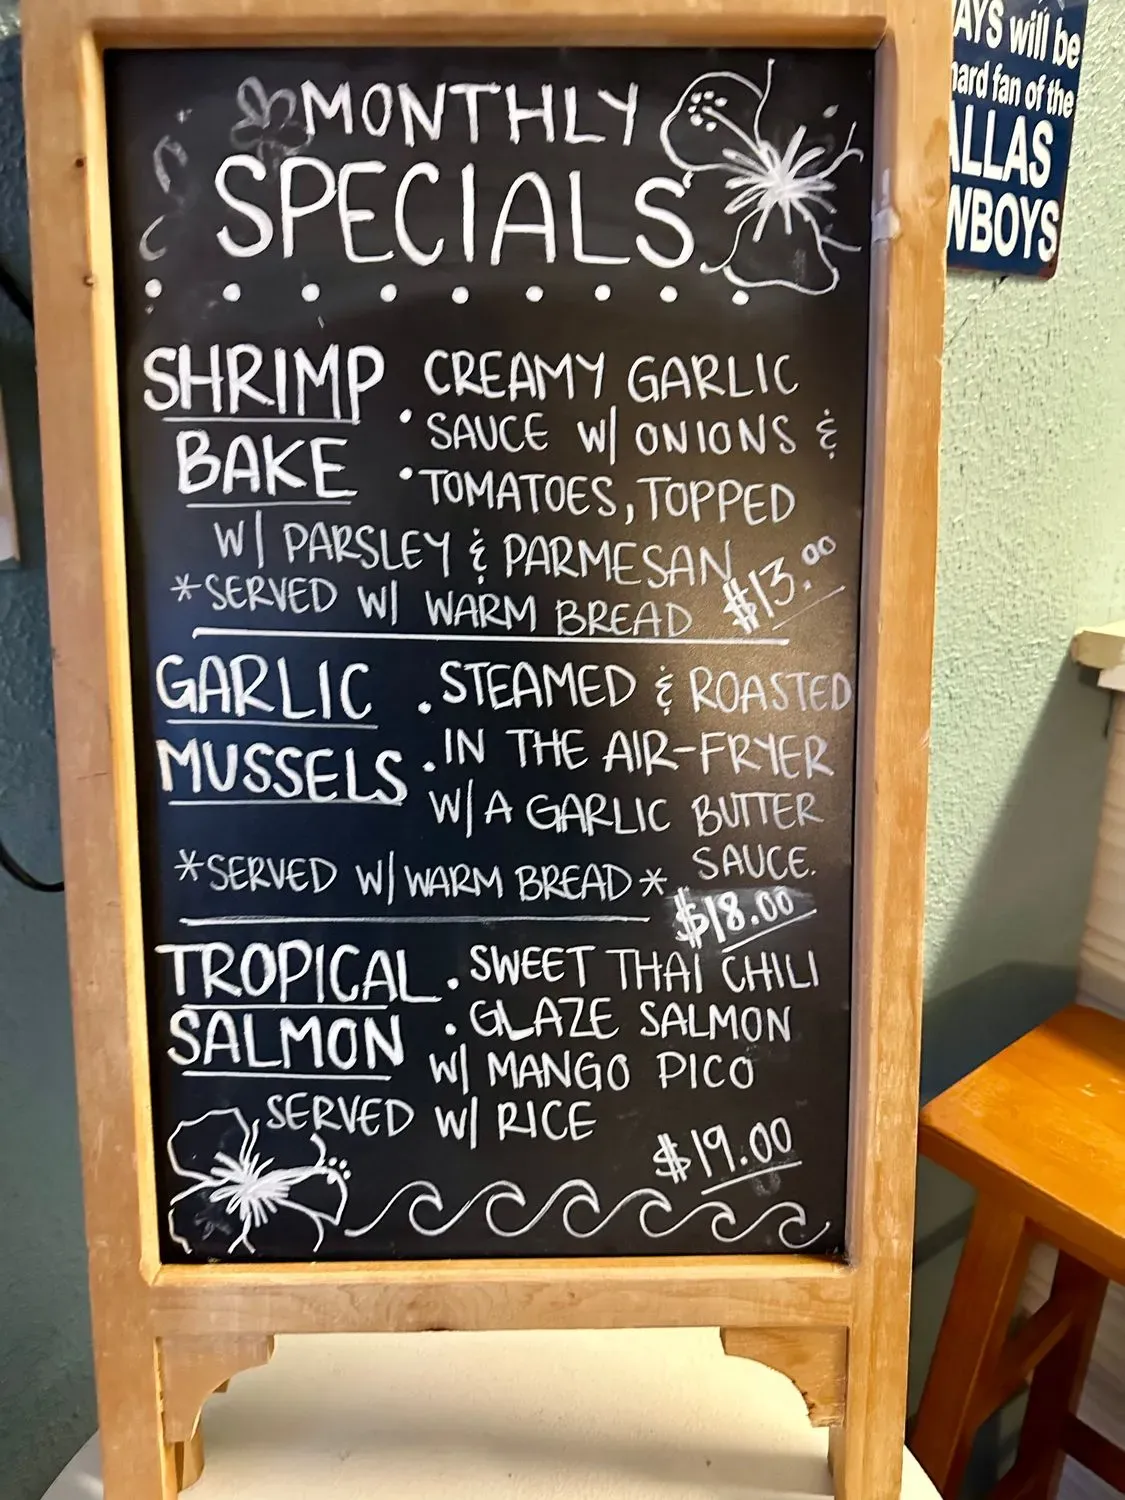 MONTHLY
SPECIALS
SHRIMP
BAKE
• CREAMY GARLIC
SAUCE W/ ONIONS &
• TOMATOES, TOPPED
W/ PARSLEY & PARMESAN
*SERVED W/ WARM BREAD
$13.00
GARLIC
MUSSELS
. STEAMED & ROASTED
. IN THE AIR-FRYER
W/ A GARLIC BUTTER
SAUCE.
*SERVED W/ WARM BREAD*
$18.00
TROPICAL
SALMON
. SWEET THAI CHILI
. GLAZE SALMON
W/ MANGO PICO
SERVED W/ RICE
$19.00
AYS will be
hard fan of the
ALLAS
WBOYS